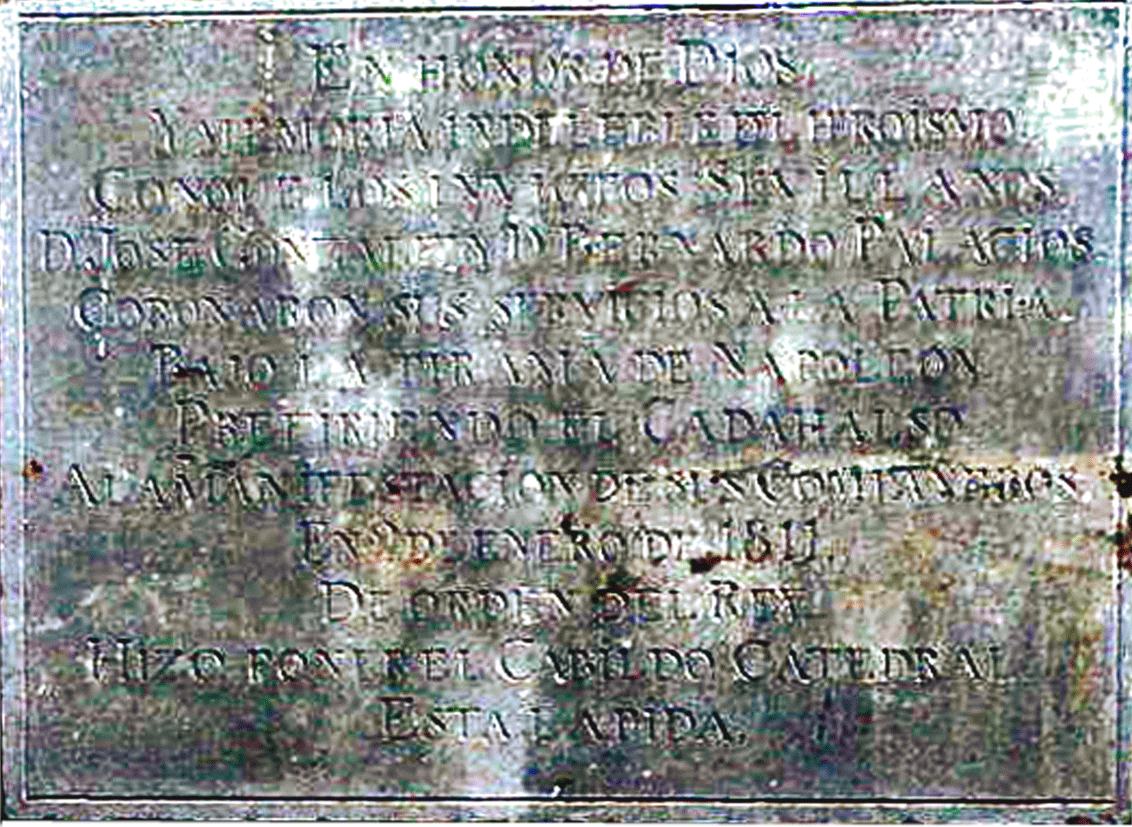 EN HONOR DE DIOS.
Y MEMORIA INDELEBLE DEL HEROISMO
CON QUE LOS INVICTOS SEVILLANOS
D. JOSE GONZALEZ Y D BERNARDO PALACIOS.
CORONARON SUS SERVICIOS A LA PATRIA.
BAJO LA TIRANIA DE NAPOLEON
PREFIRIENDO EL CADAHALSO
A LA MANIFESTACION DE SUS COMPAÑEROS
EN 9 DE ENERO DE 1811.
DE ORDEN DEL REY
HIZO PONER EL CABILDO CATEDRAL
ESTA LAPIDA.